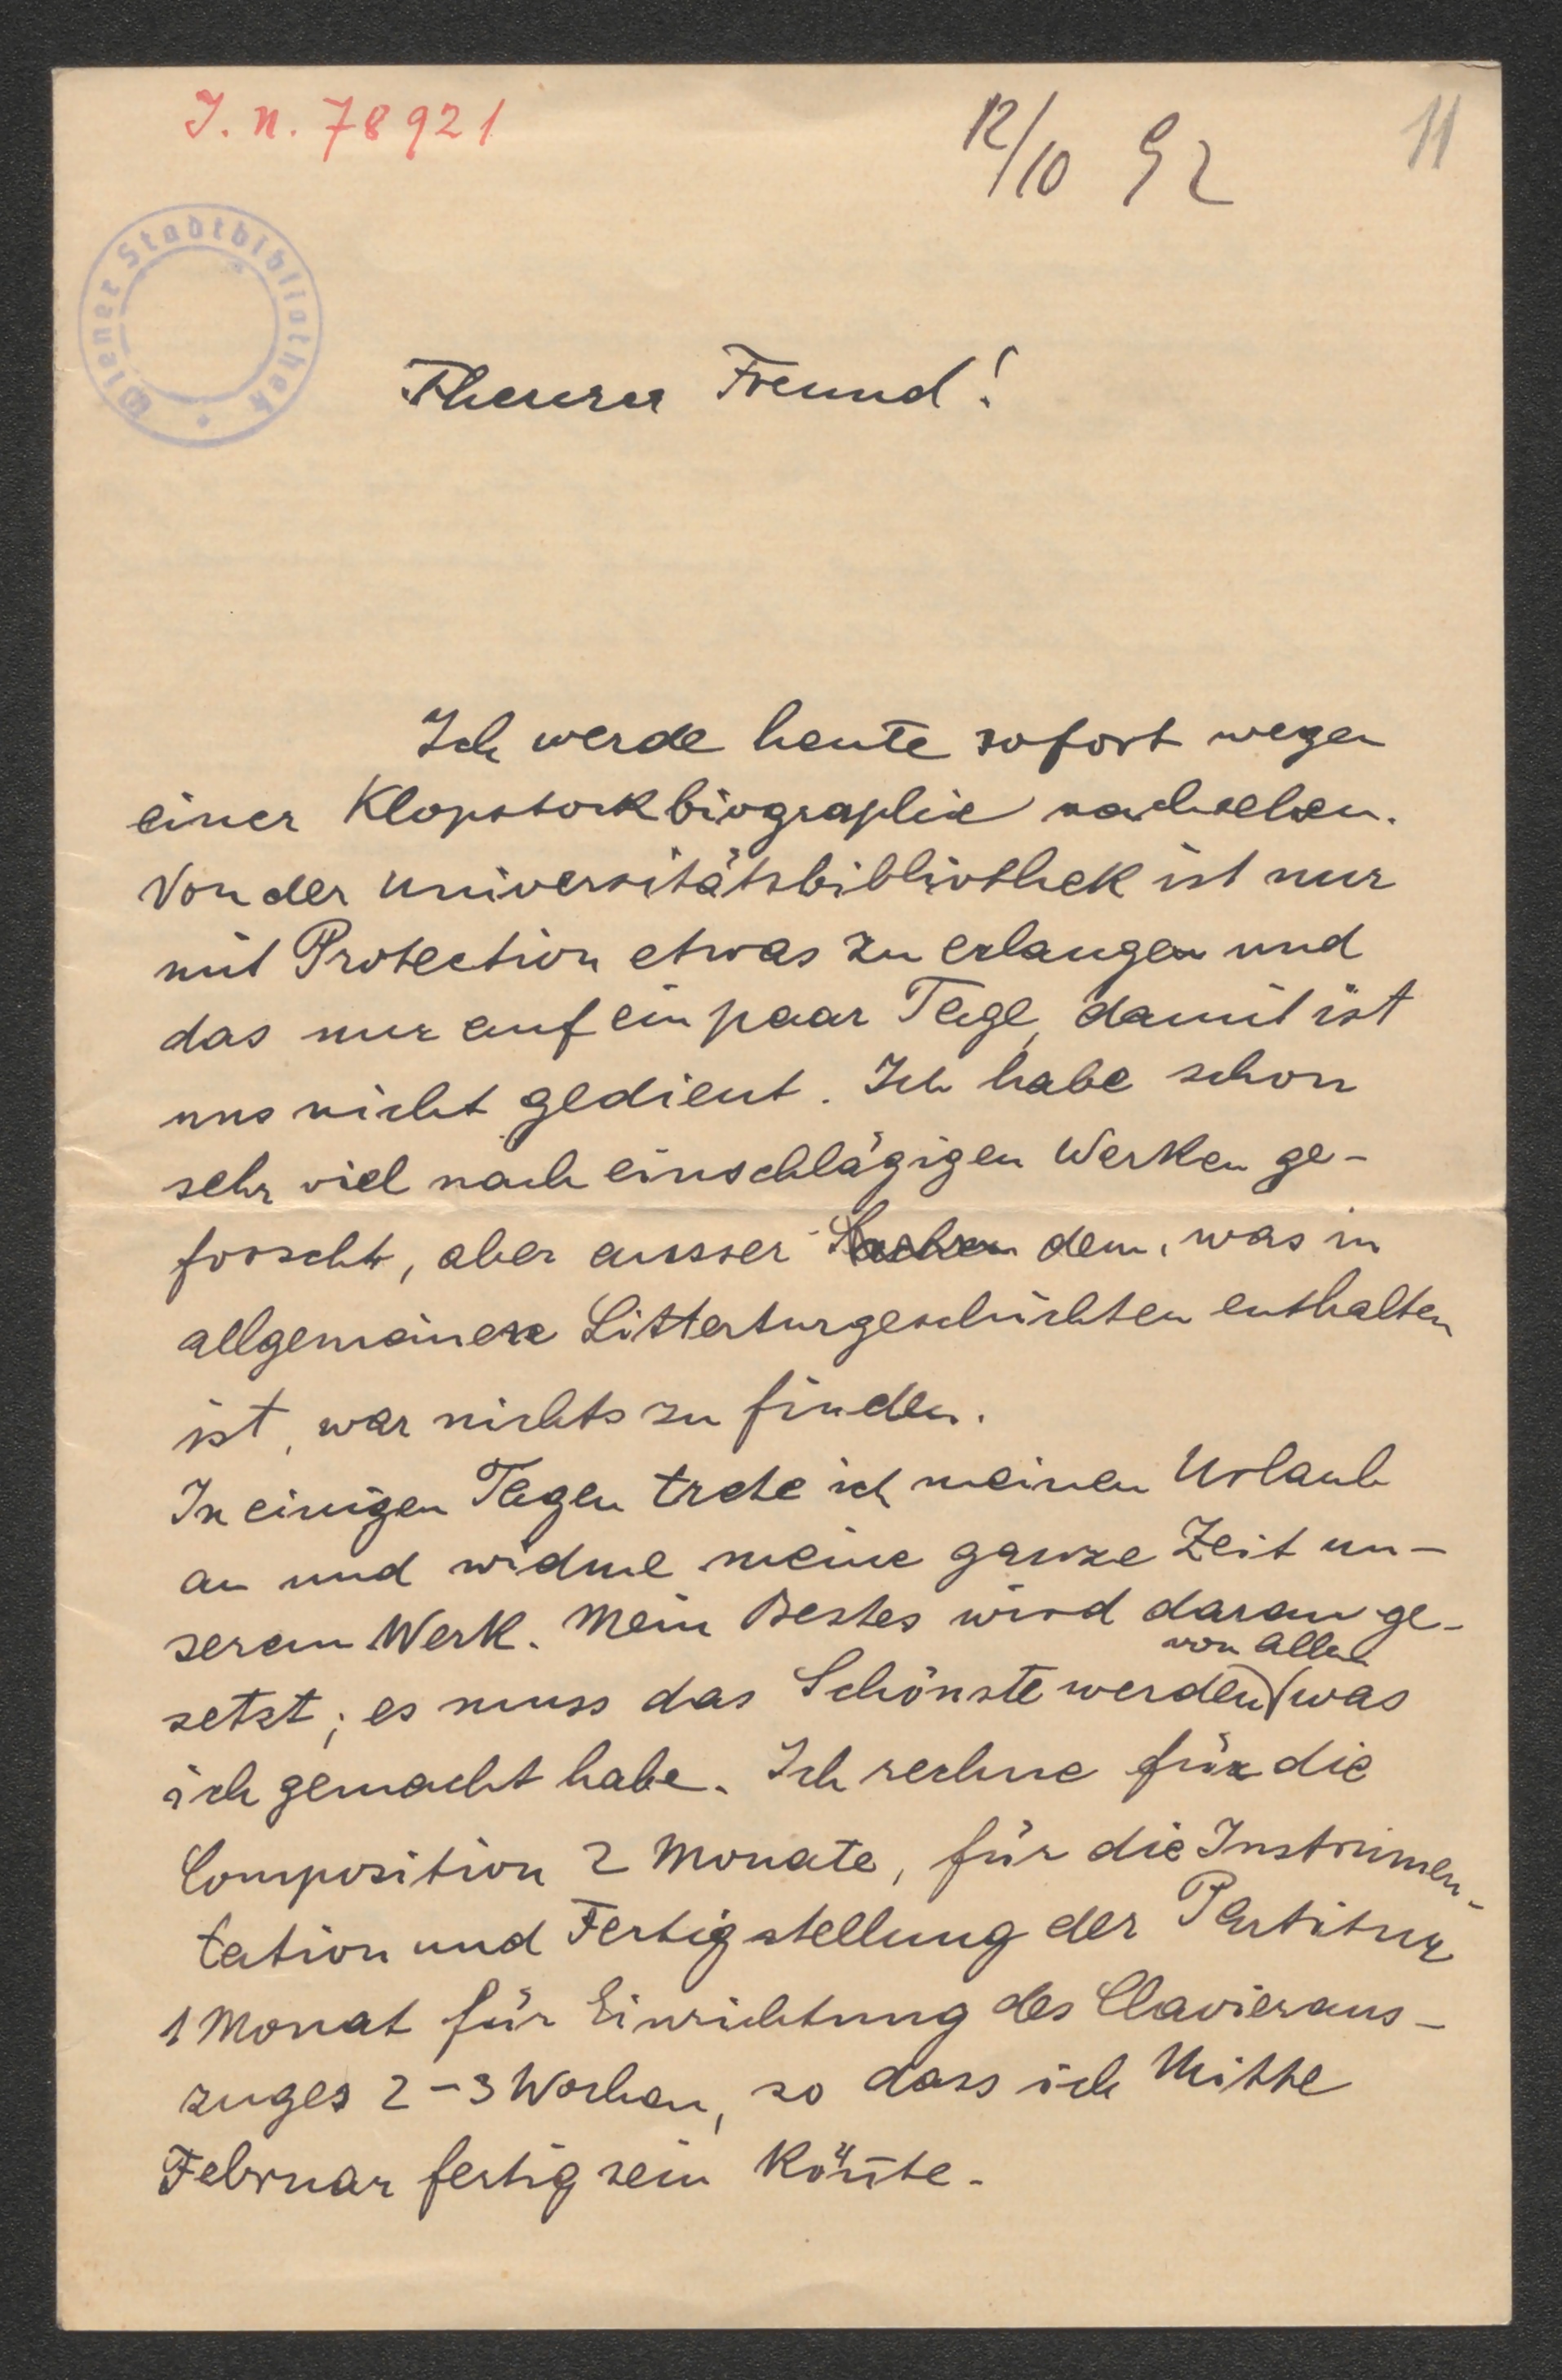 J. n. 78921
12/10 92
11
Wiener Stadtbibliothek
Theurer Freund!
Ich werde heute sofort wegen
einer Klopstockbiographie nachsehen.
Von der Universitätsbibliothek ist nur
mit Protection etwas zu erlangen und
das nur auf ein paar Tage, damit ist
uns nicht gedient. Ich habe schon
sehr viel nach einschlägigen Werken ge-
forscht, aber ausser dem, was in
allgemeinen Litteraturgeschichten enthalten
ist, war nichts zu finden.
In einigen Tagen trete ich meinen Urlaub
an und widme meine ganze Zeit un-
serem Werk. Mein Bestes wird daran ge-
von allem
setzt; es muss das Schönste werden (was
ich gemacht habe. Ich rechne für die
Composition 2 Monate, für die Instrumen-
tation und Fertigstellung der Partitur
1 Monat für Einrichtung des Clavieraus-
zuges 2-3 Wochen, so dass ich Mitte
Februar fertig sein kön̄te.